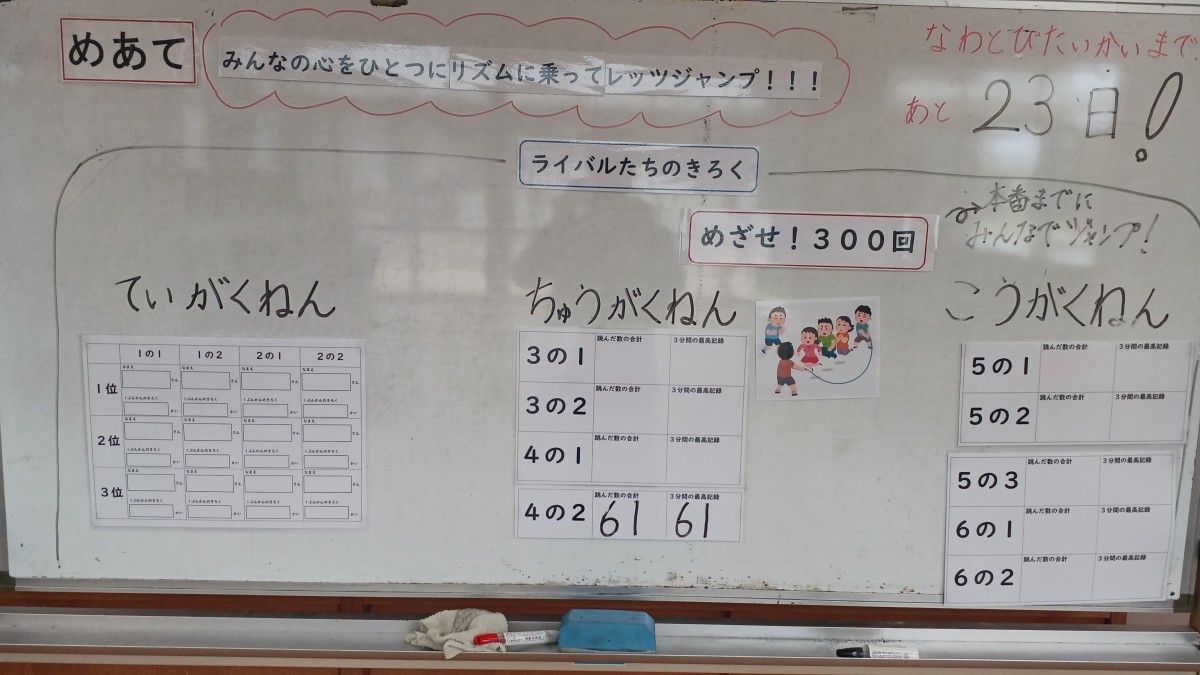 めあて
みんなの心をひとつにリズムに乗ってレッツジャンプ！！！
なわとびたいかいまで、
あと 23日！
ライバルたちのきろく
→本番までに
みんなでジャンプ！
めざせ！３００回
ていがくねん
1の1 1の2 2の1 2の2
1位
なまえ さん なまえ さん なまえ さん なまえ さん
1ぷんかんのきろく かい 1ぷんかんのきろく かい 1ぷんかんのきろく かい 1ぷんかんのきろく かい
2位
なまえ さん なまえ さん なまえ さん なまえ さん
1ぷんかんのきろく かい 1ぷんかんのきろく かい 1ぷんかんのきろく かい 1ぷんかんのきろく かい
3位
なまえ さん なまえ さん なまえ さん なまえ さん
1ぷんかんのきろく かい 1ぷんかんのきろく かい 1ぷんかんのきろく かい 1ぷんかんのきろく かい
ちゅうがくねん
3の1 跳んだ数の合計 3分間の最高記録
3の2 跳んだ数の合計 3分間の最高記録
4の1 跳んだ数の合計 3分間の最高記録
4の2 跳んだ数の合計 61 3分間の最高記録 61
こうがくねん
5の1 跳んだ数の合計 3分間の最高記録
5の2 跳んだ数の合計 3分間の最高記録
5の3 跳んだ数の合計 3分間の最高記録
6の1 跳んだ数の合計 3分間の最高記録
6の2 跳んだ数の合計 3分間の最高記録